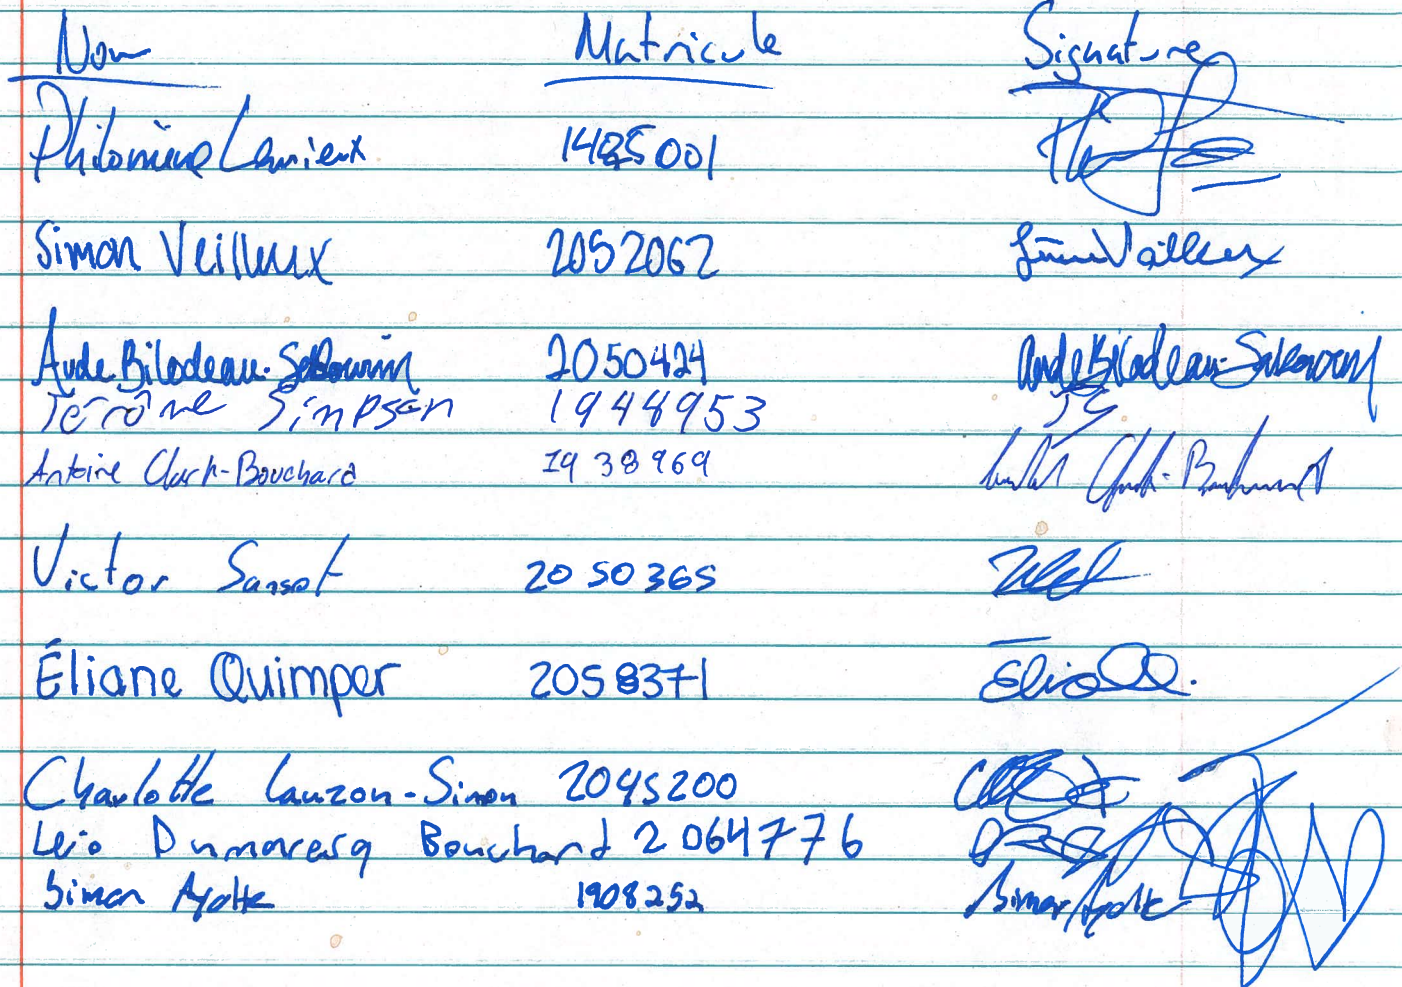 Nom Matricule Signature
Philomène Lemieux 1485001
Simon Veilleux 2052062 Simon Veilleux
Aude Bilodeau- 2050424 Aude Bilodeau-
Jérôme Simpson 1948953 JS
Antoine Clark-Bouchard 1938969 Clark-Bouchard
Victor Sansot 2050365
Éliane Quimper 2058371
Charlotte Lauzon-Simon 2045200
Dumaresq Bouchard 2064776
Simon Ayotte 1908252 Simon Ayotte